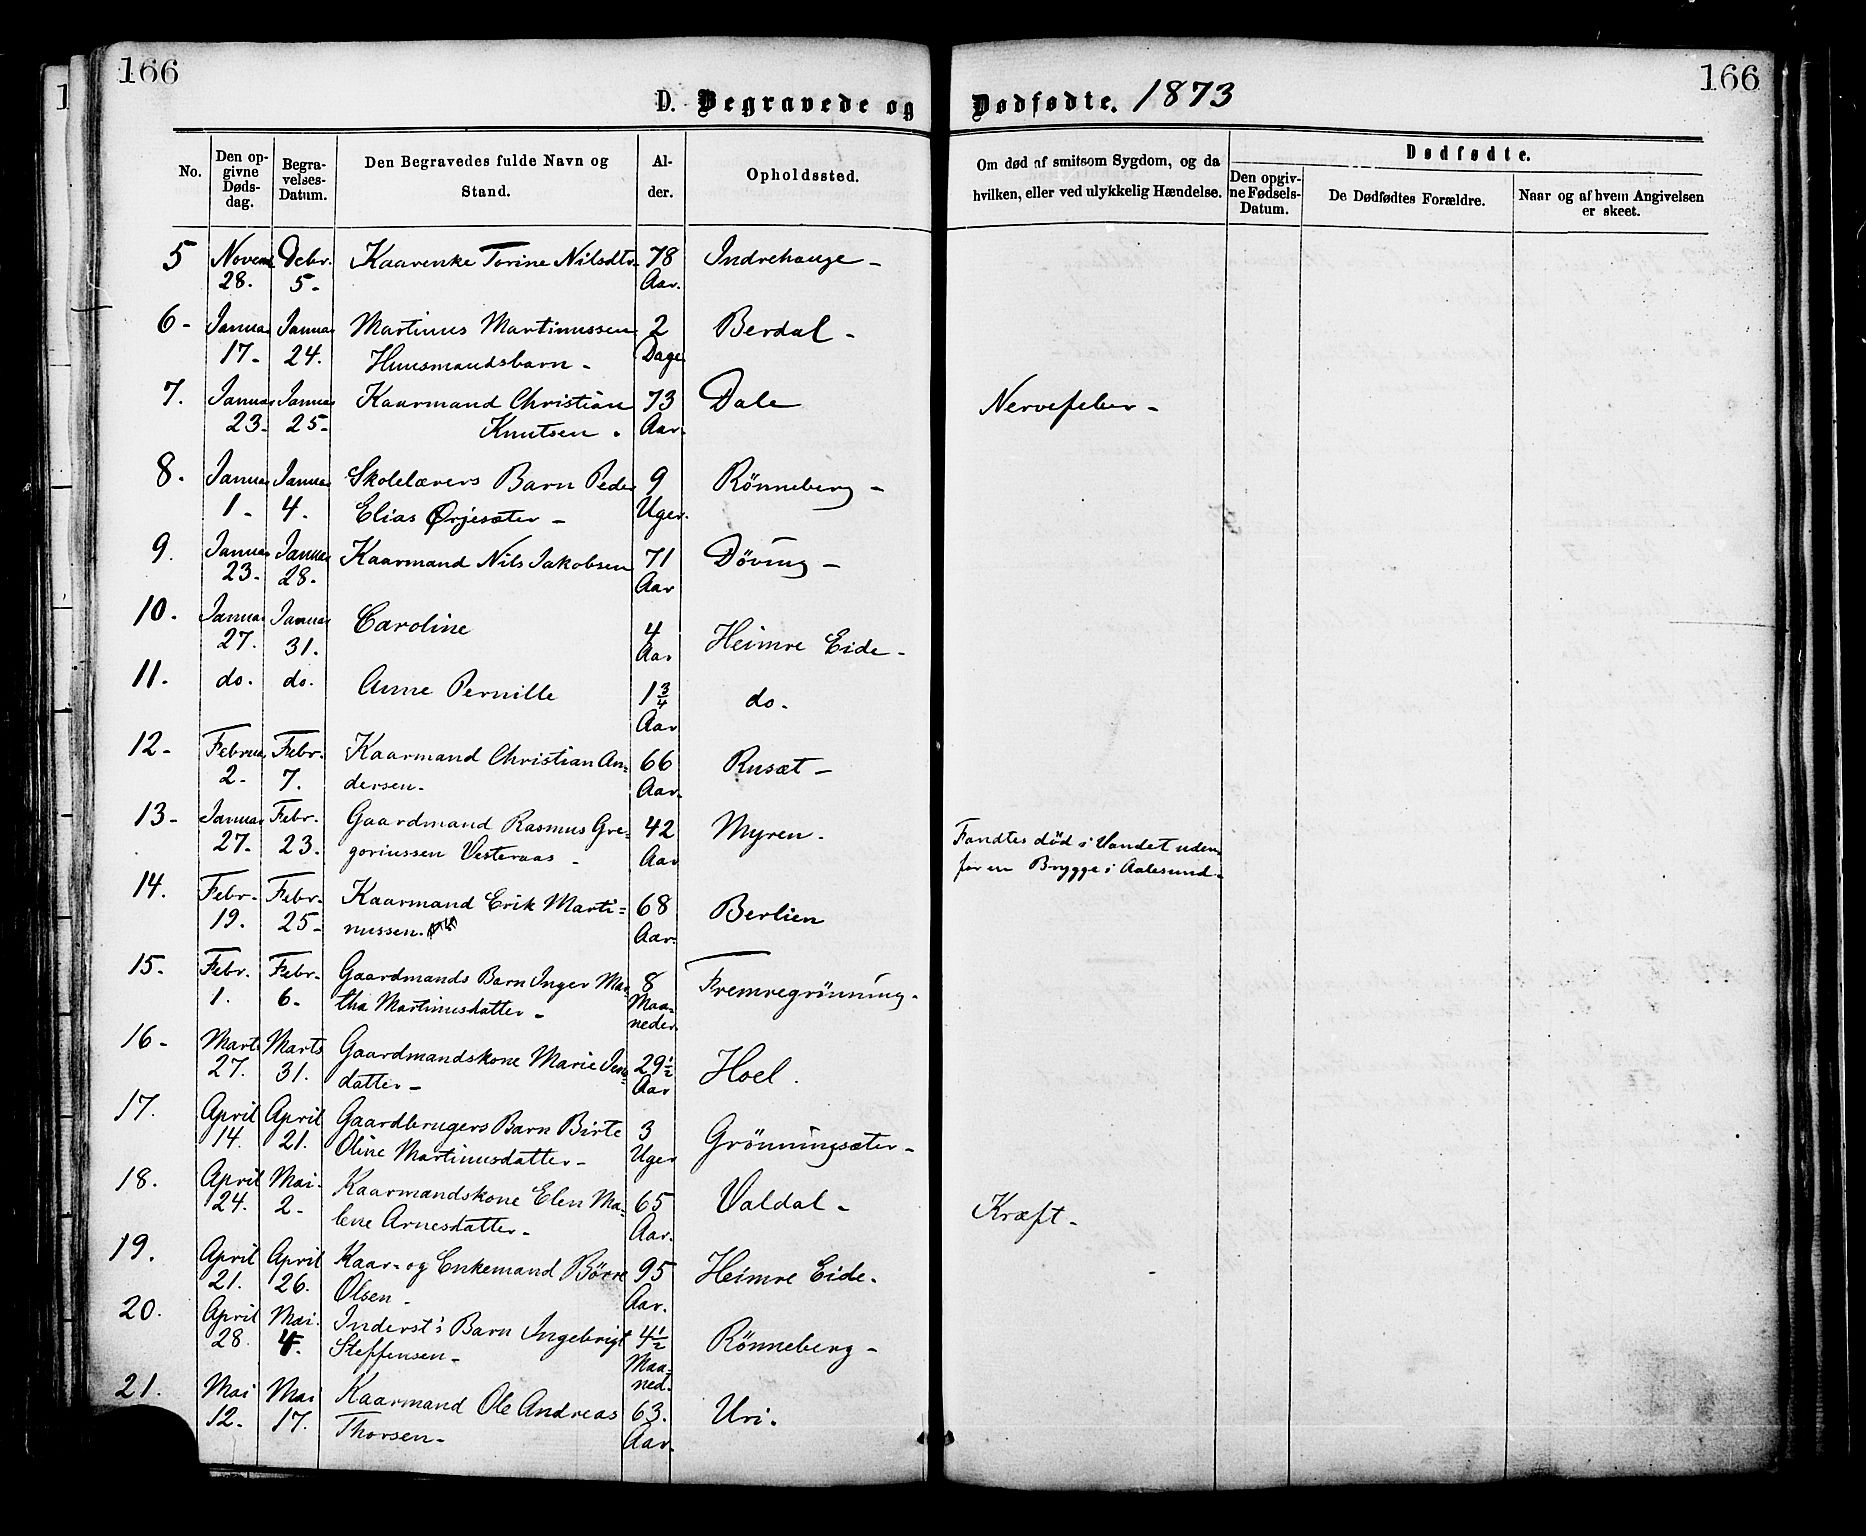 166
166
D. Begravede og Dødfødte. 1873
No.
Den opgivne Dødsdag.
Begravelses-Datum.
Den Begravedes fulde Navn og Stand.
Alder.
Opholdssted.
Om død af smitsom Sygdom, og da hvilken, eller ved ulykkelig Hændelse.
Dødfødte.
Den opgivne Fødsels-Datum.
De Dødfødtes Forældre.
Naar og af hvem Angivelsen er skeet.
5 Novem Debr. Kaarenke Torine Nilsdtr 78 Indrehauge -
28. 5- Aar.
6- Januar Januar Martinus Martinussen 2 Berdal -
17- 24. Huusmandsbarn - Dage
7. Januar Januar Kaarmand Christian 73 Dale Nervefeber -
23- 25- Knutsen . Aar.
8. Januar Januar Skolelærers Barn Peder 9 Rönneberg -
1- 4- Elias Ørjesæter - Uger.
9. Januar Januar Kaarmand Nils Jakobsen 71 Döving -
23- 28- Aar
10. Januar Januar Caroline 4 Heimre Eide -
27. 31. Aar
11. do. do. Anne Pernille 1 3/4 do.
Aar
12- Februar Febr. Kaarmand Christian An= 66 Rusæt -
2- 7. dersen. Aar.
13- Januar Febr. Gaardmand Rasmus Gre= 42 Myren - Fandtes død i Vandet uden=
27. 23. goriussen Vesteraas - Aar for en Brygge i Aalesund.
14. Febr. Febr. Kaarmand Erik Marti= 68 Berlien
19. 25- nussen. Aar.
15- Febr. Febr. Gaardmands Barn Inger Mar 8 Fremregrönning -
1. 6- tha Martinusdatter - Maa=
neder.
16- Marts Marts Gaardmandskone Marie Jens= 29 1/2 Hoel.
27. 31. datter - Aar
17. April April Gaardbrugers Barn Birte 3 Grönningsæter -
14. 21. Oline Martinusdatter - Uger
18. April Mai. Kaarmandskone Elen Ma= 65 Valdal - Kræft -
24. 2- lene Arnesdatter - Aar.
19. April April Kaar- og Enkemand Börre 95 Heimre Eide.
21. 26. Olsen - Aar.
20. April Mai. Inderst's Barn Ingebrigt 4 1/2 Rönneberg -
28. 4. Steffensen - Maa=
ned.
21. Mai Mai Kaarmand Ole Andreas 63. Uri.
12- 17. Thorsen - Aar.